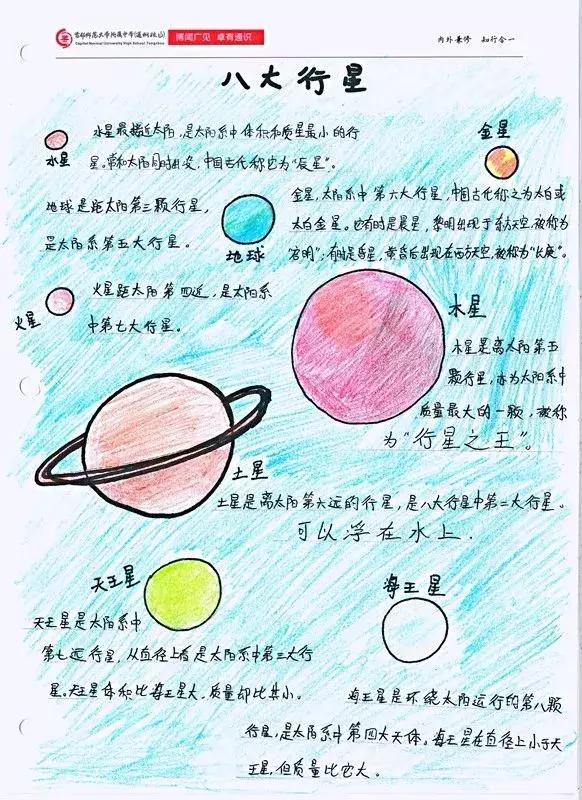 首都师范大学附属中学(通州校区)
Capital Normal University High School Tongzhou
博闻广见 卓有通识
内外兼修 知行合一
八大行星
水星
水星最接近太阳,是太阳系中体积和质量最小的行
星。常和太阳同时出没,中国古代称它为“辰星”。
金星
金星,太阳系中第六大行星,中国古代称之为太白或
太白金星。它有时是晨星,黎明出现于东方天空,被称为
“启明”;有时是昏星,黄昏后出现在西方天空,被称为“长庚”。
地球是距太阳第三颗行星,
是太阳系第五大行星。
地球
火星
火星距太阳第四近,是太阳系
中第七大行星。
木星
木星是离太阳第五
颗行星,亦为太阳系中
质量最大的一颗,被称
为“行星之王”。
土星
土星是离太阳第六远的行星,是八大行星中第二大行星。
可以浮在水上.
天王星
天王星是太阳系中
第七远行星,从直径上看是太阳系中第三大行
星。天王星体积比海王星大,质量却比其小。
海王星
海王星是环绕太阳运行的第八颗
行星,是太阳系中第四大天体。海王星在直径上小于天
王星,但质量比它大。